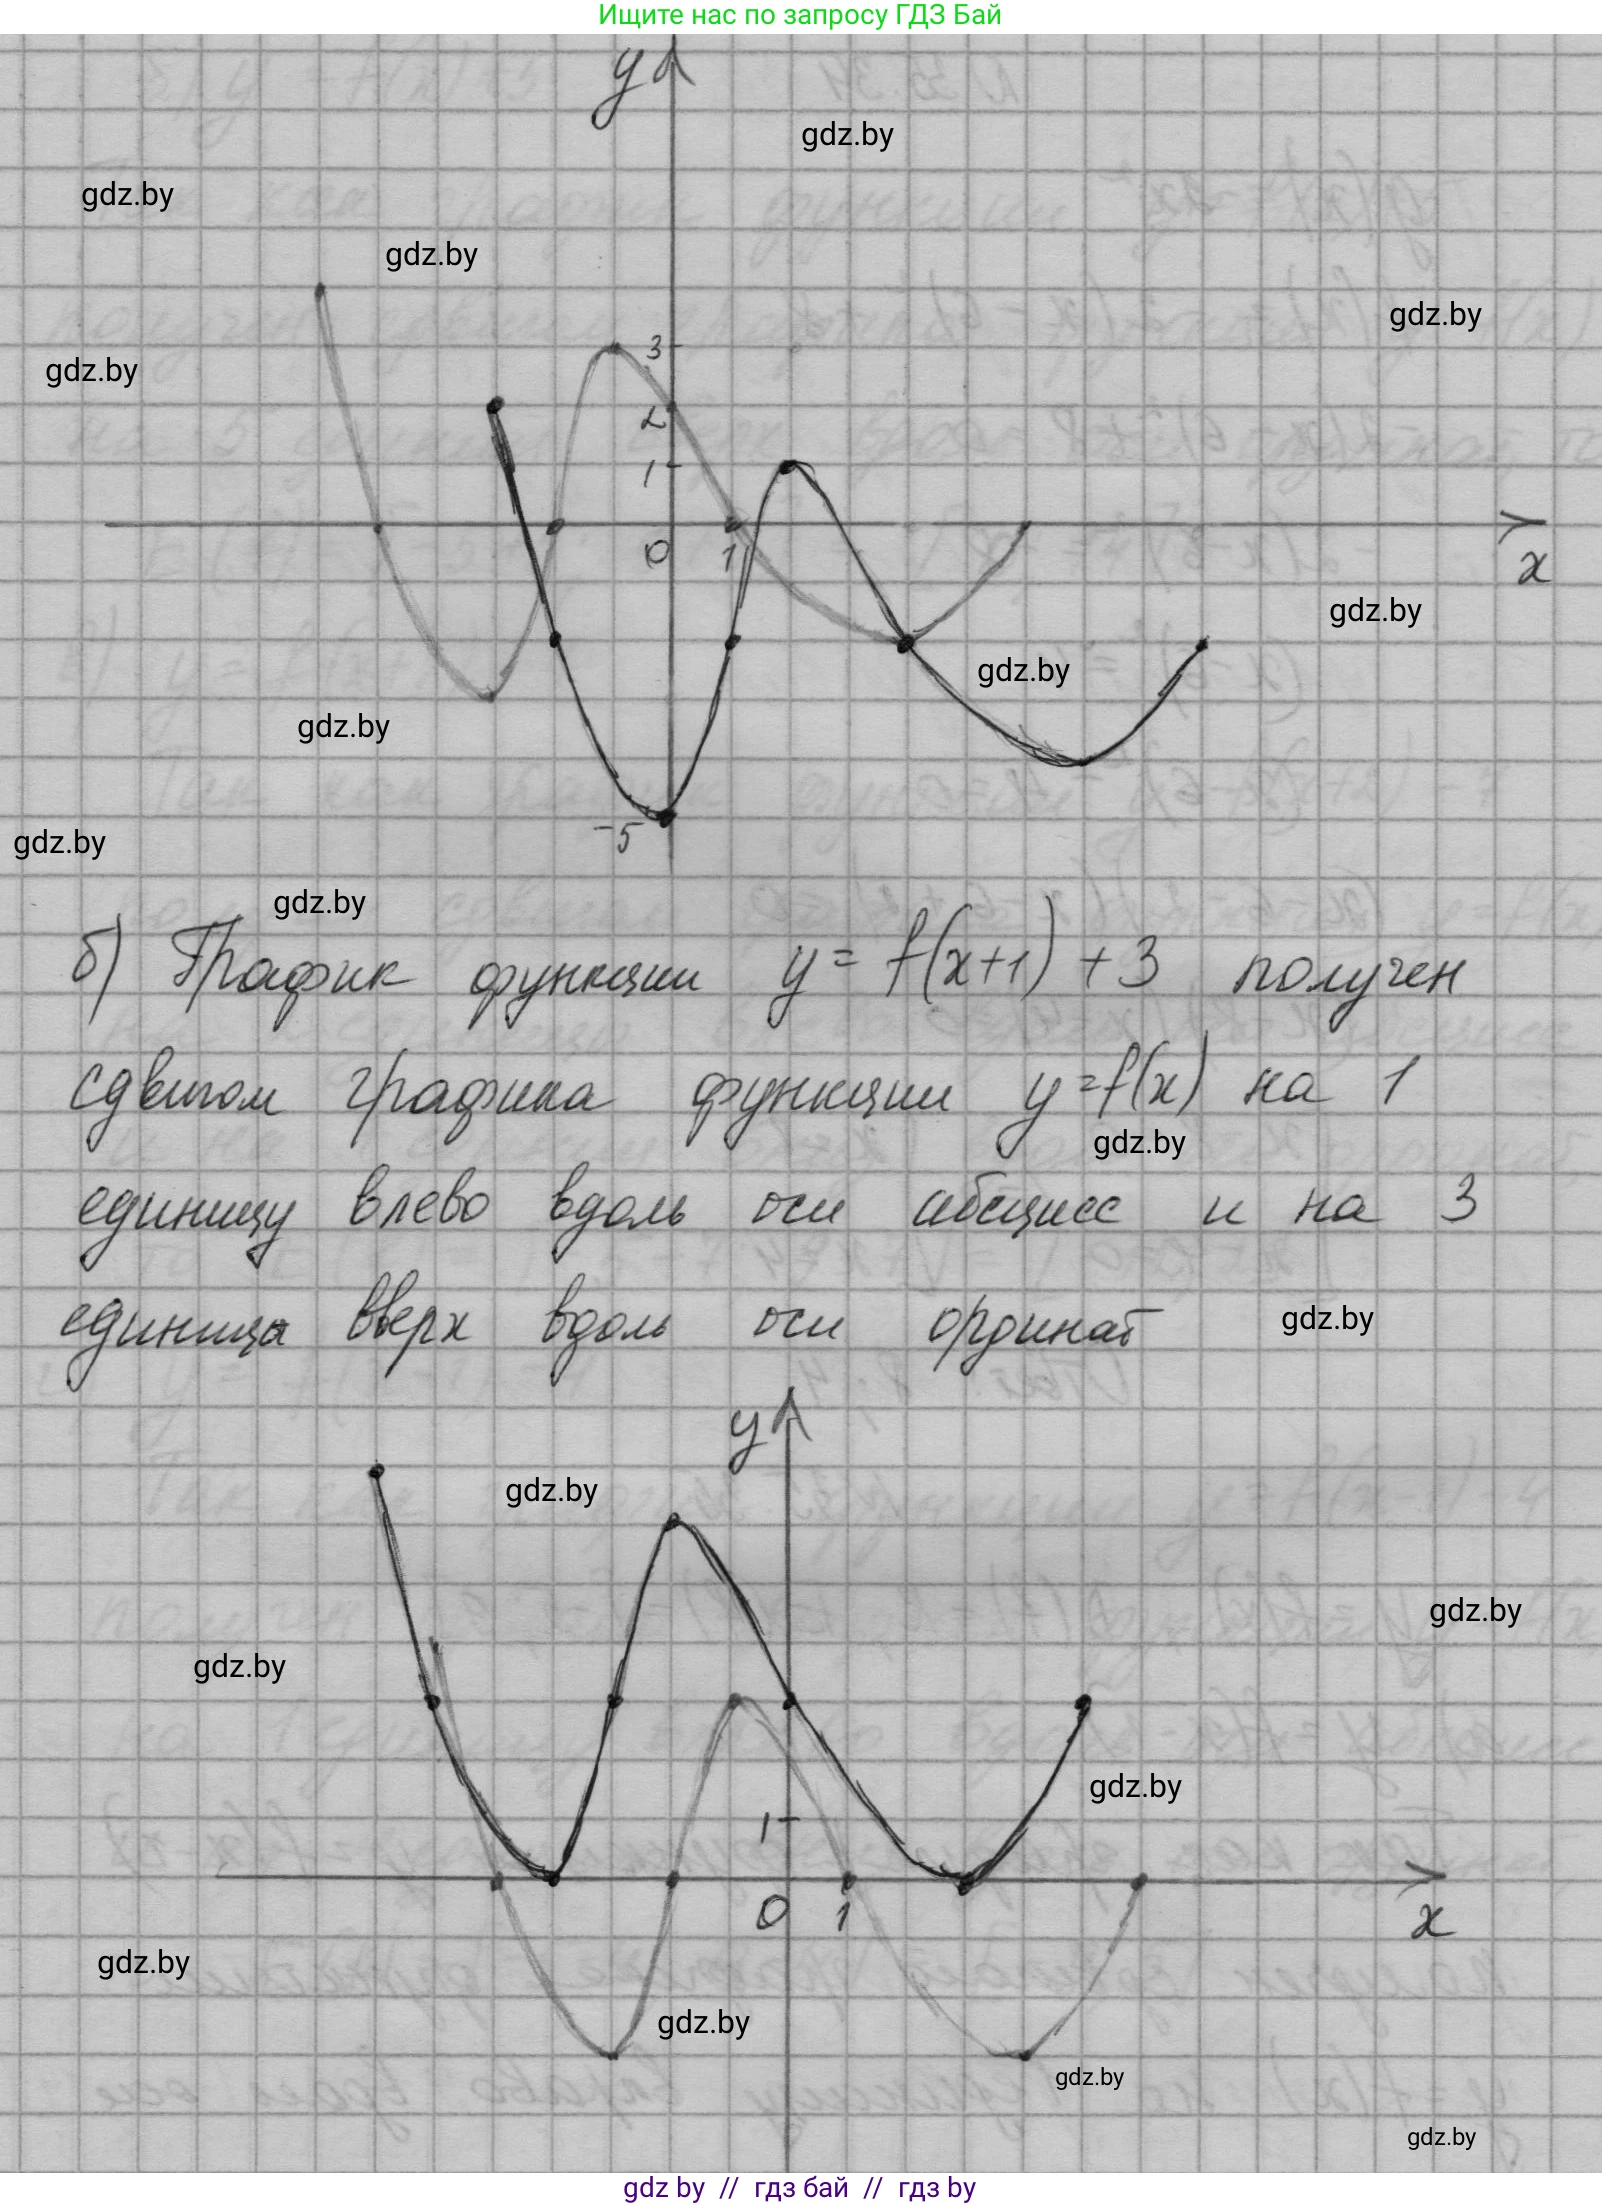 Ищите нас по запросу ГДЗ Бай
y
gdz.by
gdz.by
gdz.by
gdz.by
3
gdz.by
2
1
0 1
x
gdz.by
gdz.by
gdz.by
-5
gdz.by
gdz.by
б) График функции y = f(x+1) + 3 получен
сдвигом графика функции y=f(x) на 1
gdz.by
единицу влево вдоль оси абсцисс и на 3
единицы вверх вдоль оси ординат
gdz.by
y
gdz.by
gdz.by
gdz.by
gdz.by
1
0 1
x
gdz.by
gdz.by
gdz.by
gdz.by
gdz by // гдз бай // гдз by